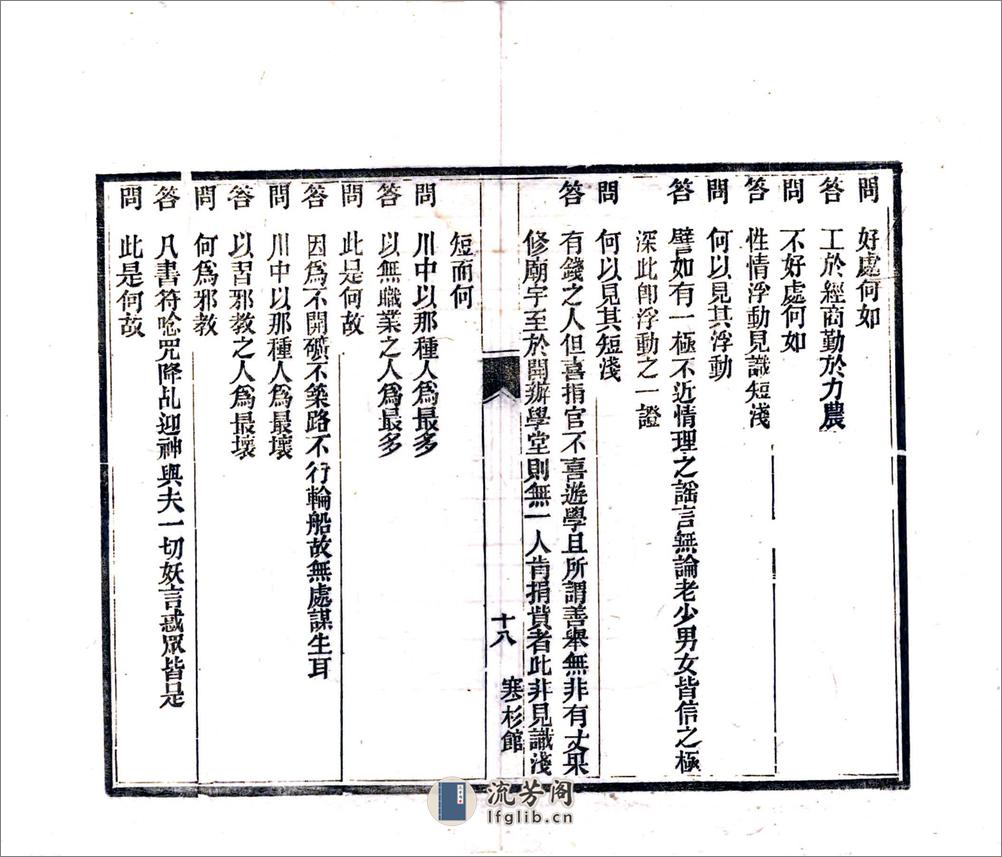 問　好處何如
答　工於經商勤於力農
問　不好處何如
答　性情浮動見識短淺
問　何以見其浮動
答　譬如有一極不近情理之謡言無論老少男女皆信之極
深此卽浮動之一證
問　何以見其短淺
答　有錢之人但喜捐官不喜遊學且所謂善舉無非有丈果
修廟宇至於開辦學堂則無一人肯捐貲者此非見識淺
十八　寒杉館
短而何
問　川中以那種人爲最多
答　以無職業之人爲最多
問　此是何故
答　因爲不開礦不築路不行輪船故無處謀生耳
問　川中以那種人爲最壞
答　以習邪教之人爲最壞
問　何爲邪教
答　凡書符唸咒降乩迎神與夫一切妖言惑眾皆是
問　此是何故
流芳阁
lfglib.cn